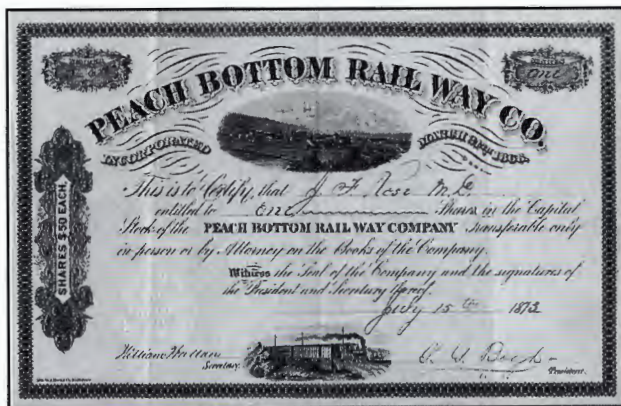 SHARES
One
PEACH BOTTOM RAIL WAY CO.
INCORPORATED
SHARES $50 EACH.
This is to Certify, that J F Rose M.D.
entitled to One Shares in the Capital
Stock of the PEACH BOTTOM RAIL WAY COMPANY Transferable only
in person or by Attorney on the Books of the Company.
Witness the Seal of the Company and the signatures of
the President and Secretary thereof.
July 15th 1873
Secretary.
President.